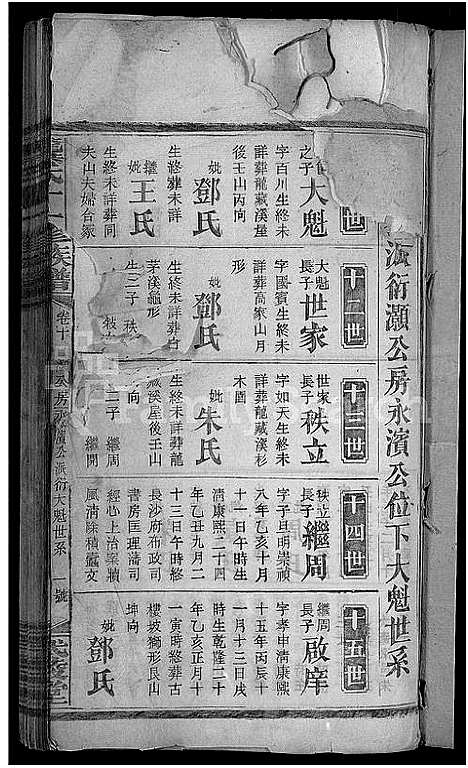 派衍灝公房永濱公位下大魁世系
世
之子大魁
字百川生終未
詳葬龍藏溪壟
後壬山丙向
妣鄧氏
生終葬未詳
繼妣王氏
生終未詳葬同
夫山夫婦合冢
十二世
大魁長子世家
字國賓生終未
詳葬高家山月
形
妣鄧氏
生終未詳葬白
茅溪龜形
生二子 秩
枝
十三世
世家長子秩立
字如天生終未
詳葬龍藏溪杉
木園
妣朱氏
生終未詳葬龍
藏溪屋後壬山
向
二子 繼周
繼開
十四世
秩立長子繼周
字子旦明崇禎
八年乙亥十月
十一日午時生
清康熙二十四
年乙丑九月二
十三日丙時終
長沙府布政司
書房匡理藩司
經心上治案牘
風清除積蠹文
十五世
繼周長子啟庠
字孝申清康熙
十五年丙辰十
一月十三日戌
時生乾隆二十
年乙亥正月十
一寅時終葬古
樓坡獅形艮山
坤向
妣鄧氏
族譜
卷十
公房永濱公派衍大魁世系
一號